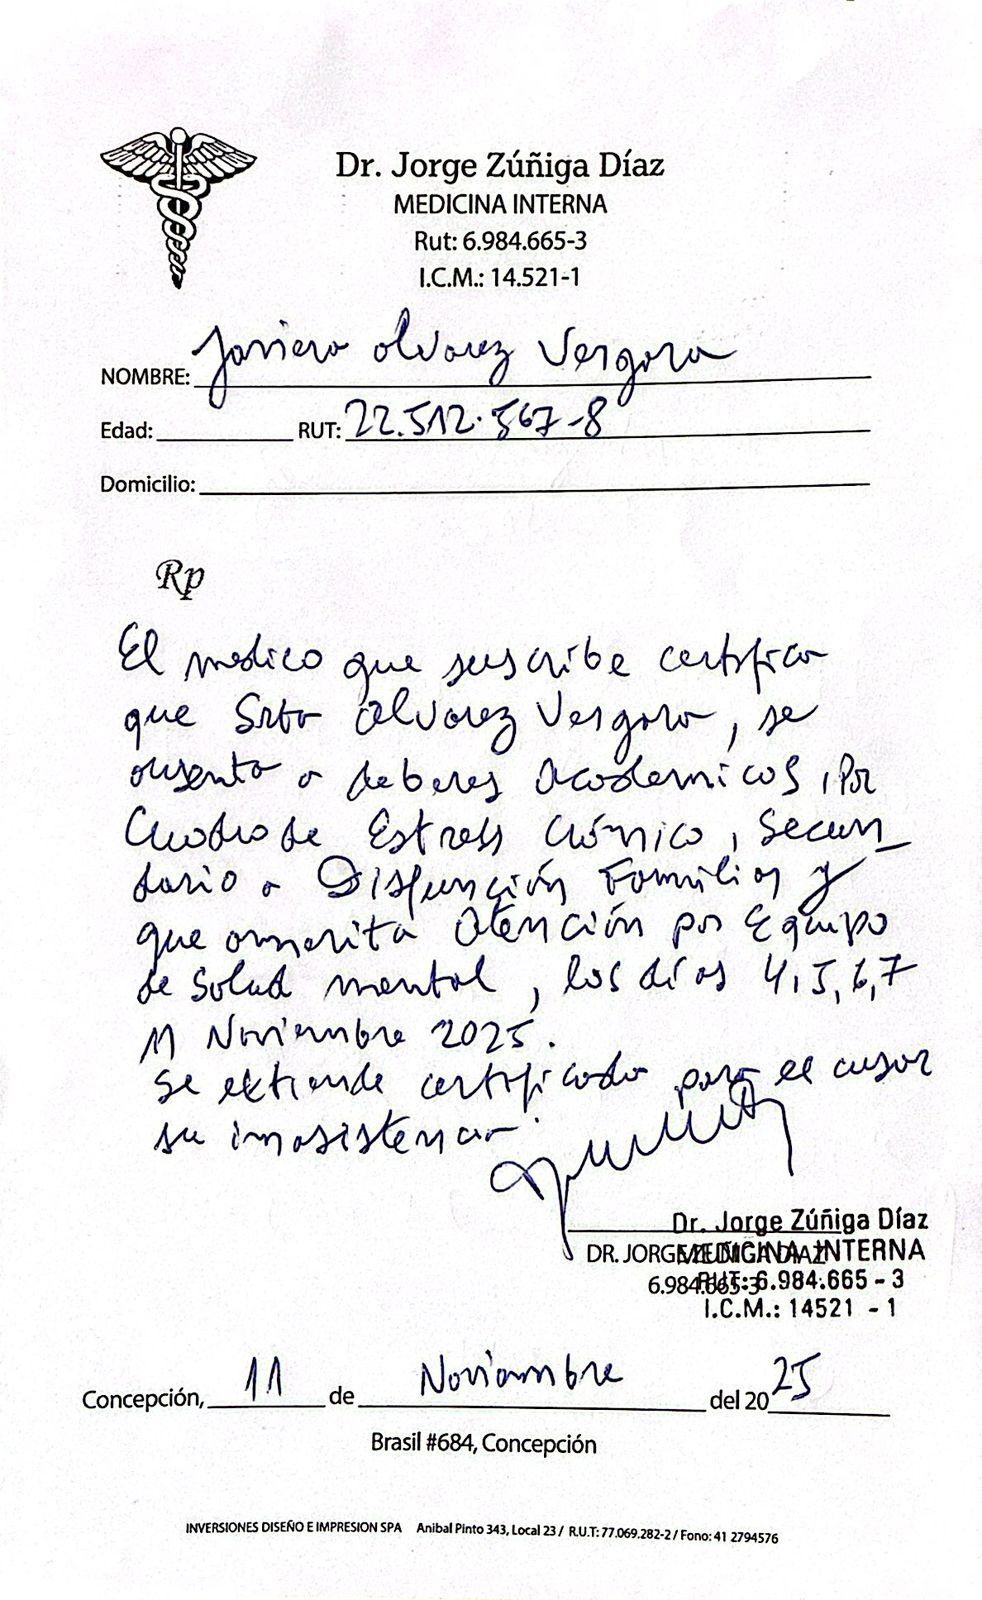 Dr. Jorge Zúñiga Díaz
MEDICINA INTERNA
Rut: 6.984.665-3
I.C.M.: 14.521-1
NOMBRE: Javiera Alvarez Vergara
Edad: RUT: 22.512.567-8
Domicilio:
Rp
El medico que suscribe certifica
que Srta Alvarez Vergara, se
ausenta a deberes Academicos, Por
Cuadro de Estress Crónico, Secun_
dario a Disfunción Familiar y
que amerita Atención por Equipo
de Salud mental, los días 4,5,6,7
11 Noviembre 2025.
Se extiende certificado para excusar
su inasistencia.
Dr. Jorge Zúñiga Díaz
DR. JORGE ZUÑIGA DIAZ MEDICINA INTERNA
6.984.665-3 RUT: 6.984.665 - 3
I.C.M.: 14521 - 1
Concepción, 11 de Noviembre del 2025
Brasil #684, Concepción
INVERSIONES DISEÑO E IMPRESION SPA Anibal Pinto 343, Local 23 / R.U.T: 77.069.282-2 / Fono: 41 2794576